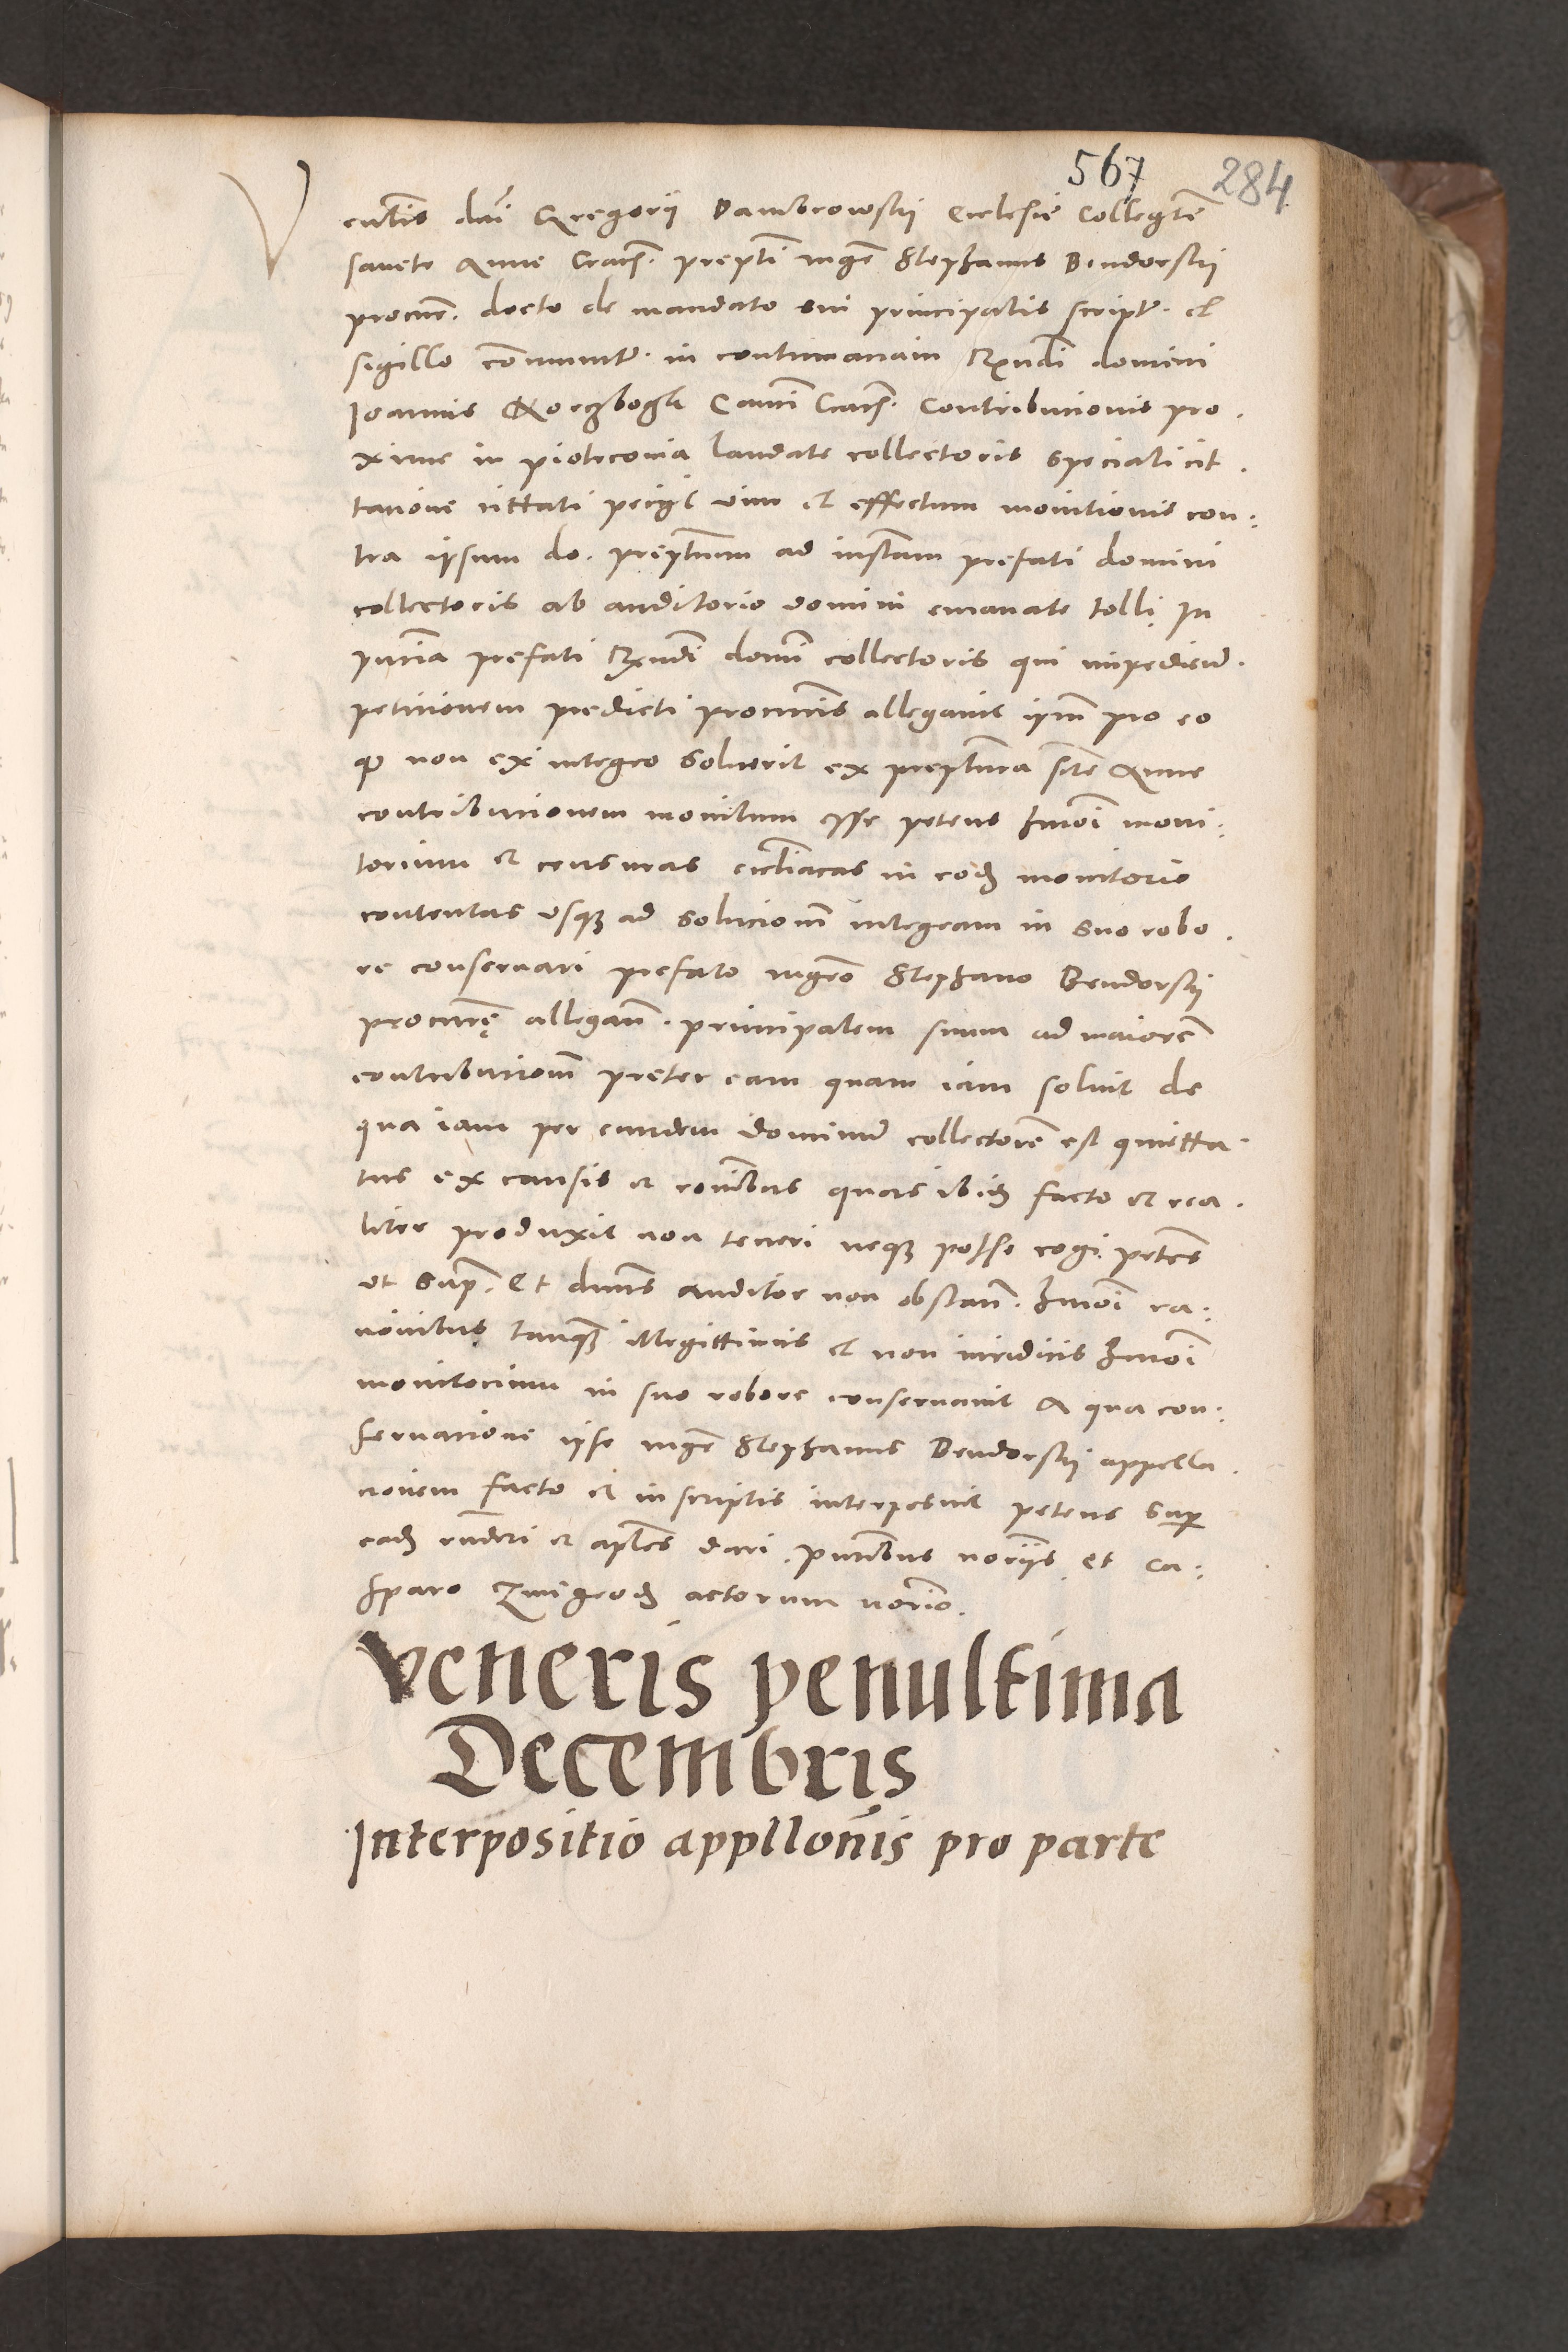 567 284
Venerabilis dñi Gregorii Dambrowskij Ecclesie Collegte
sancte Anne Cracoḥ. prepti mgr Stephanus Bendorskij
procur. docto de mandato sui principalis script. et
sigillo communit. in contumaciam Rxndi domini
Joannis Canci Cracoḥ. Contribucionis pro.
xime in pioterconia laudate collectoris speciali cit.
tacione cittati petijt vim et effectum monitionis con:
tra ipsum do. preptum ad instam prefati domini
collectoris ab auditorio domini emanate tolli In
pntia prefati Rxndi domi collectoris qui impediend.
peticionem predicti procuris allegauit ipm pro eo
qd non ex integro soluerit ex preptura scte Anne
contribucionem monitum esse petens hmoi moni:
torium et censuras ecclicas in eodem monitorio
contentas vsque ad solucionem integram in suo robo.
re conseruari prefato mgro Stephano Bendorskij
procure allegan. principalem suum ad maiorem
contribucionem preter eam quam iam soluit de
qua iam per eundem dominum collectorem est quietta.
tus ex causis et ronibus quas ibidem facto et rea.
liter produxit non teneri neque posse cogi petens
vt sup. Et dnus auditor non obstan. hmoi ra:
cionibus tanquam illegittimis et non iuridicis hmoi
monitorium in suo robore conseruauit A qua con:
seruacione ipse mgr Stephanus Bendorskij appella.
cionem facto et in scriptis interposuit petens super
eadem rnderi et aplos dari. pntibus norijs et Ca:
sparo Zmigrod actorum norio.
Veneris penultima
Decembris
Interpositio appllonis pro parte